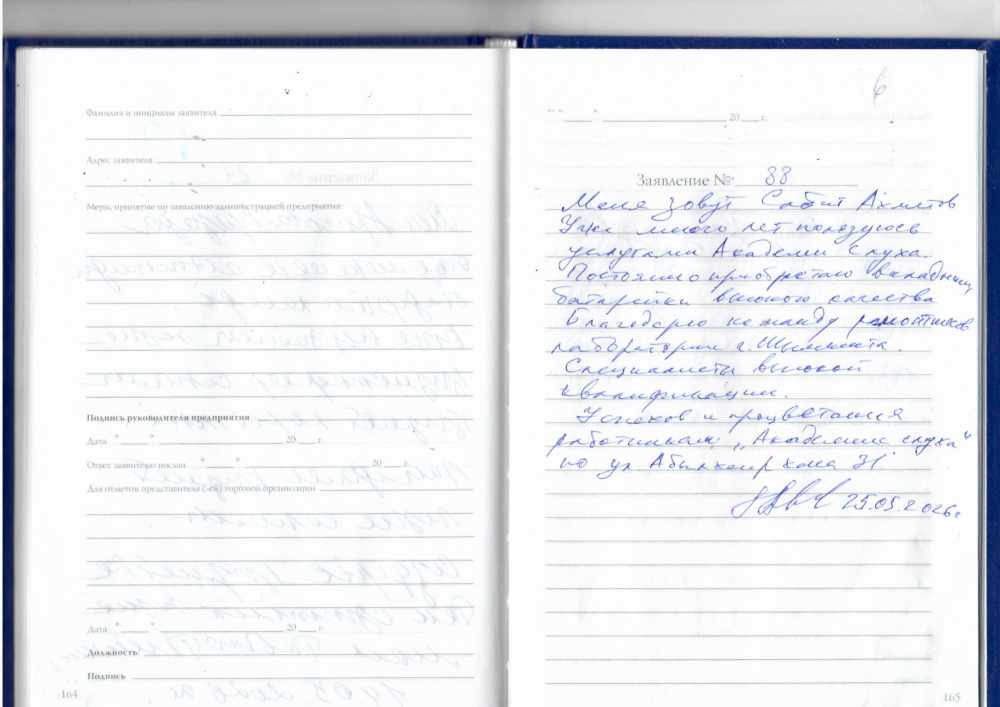 Фамилия и инициалы заявителя
Адрес заявителя
Меры, принятие по заявлению администрацией предприятия:
Подпись руководителя предприятия
Дата " " 20 г.
Ответ заявителю послан " " 20 г.
Для отметок представителя (-ей) торговой организации
Дата " " 20 г.
Должность
Подпись
164
6
" " 20 г.
Заявление № 88
Меня зовут Сабит Ахметов
Уже много лет пользуюсь
услугами Академии слуха.
Постоянно приобретаю вкладыши,
батарейки высокого качества
Благодарю команду ремонтников
лаборатории г. Шымкента.
Специалисты высокой
квалификации.
Успехов и процветания
работникам „Академие слуха"
по ул Абылхаирхана 31
25.05.2026г
165